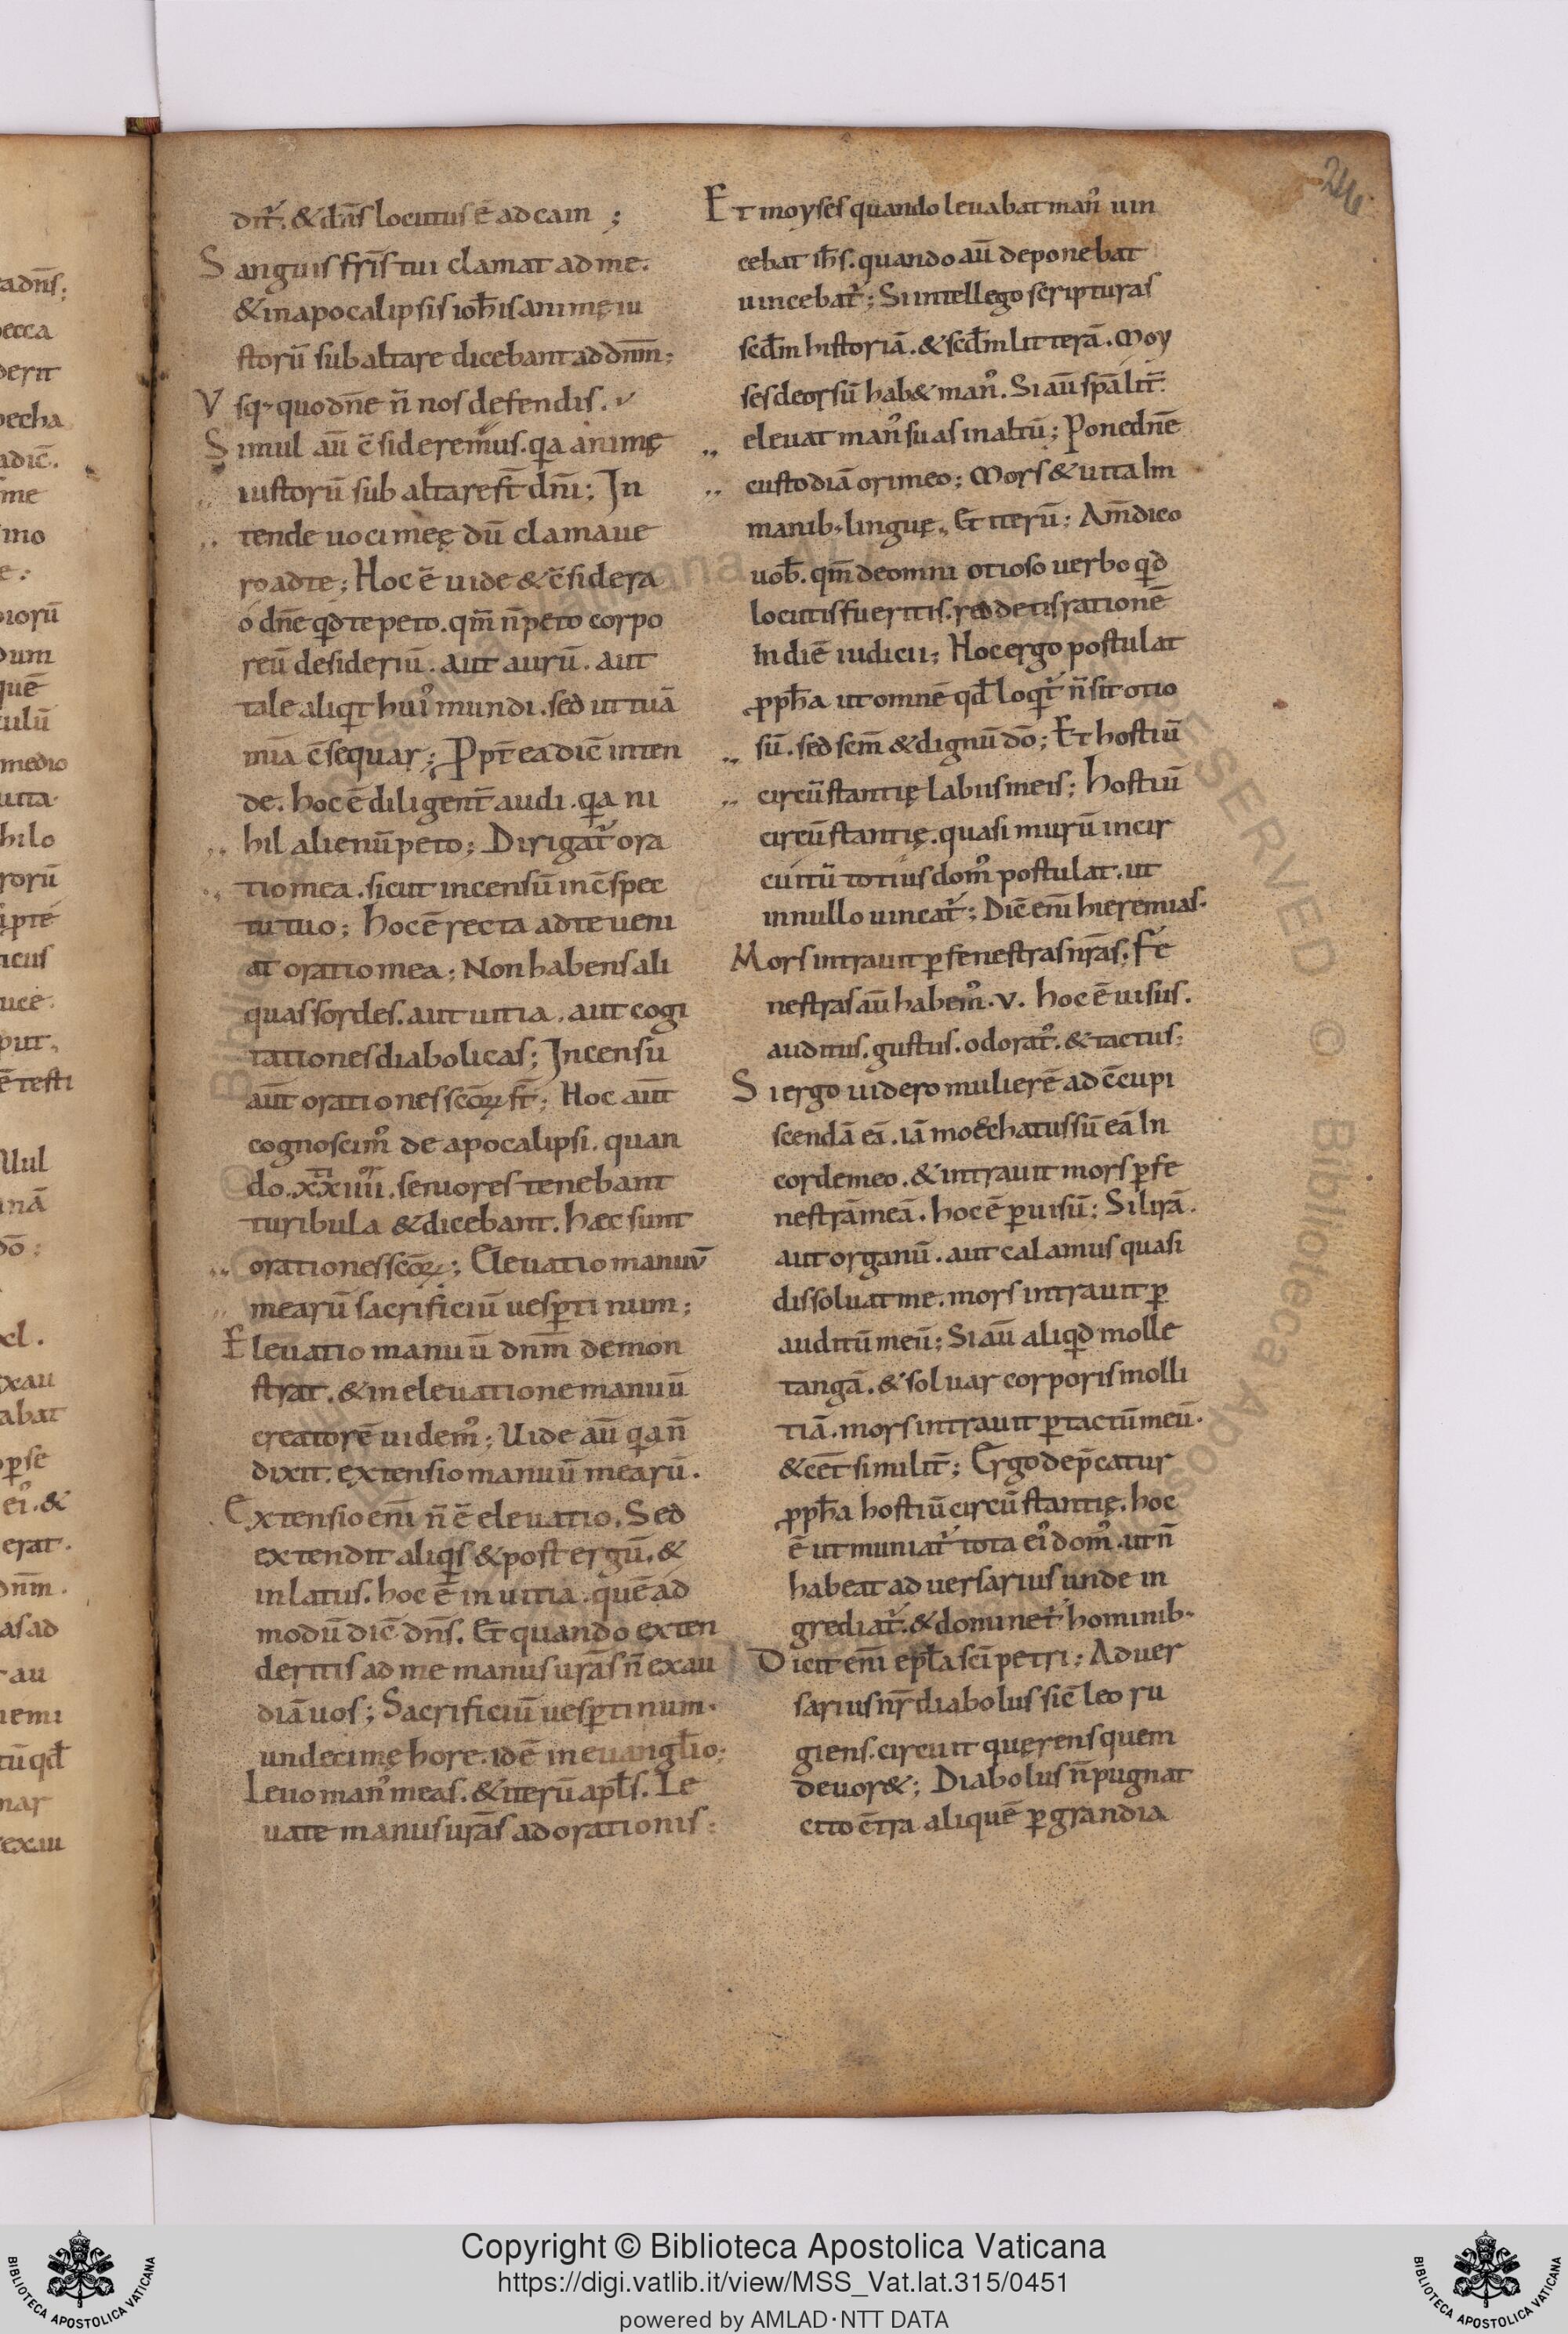 dnr̄. & dn̄s locutus ē ad cain ;
Sanguis fr̄is tui clamat ad me.
& in apocalipsis ioh̄is animę iu
storū sub altare dicebant ad dnm̄;
Vsq; quo dn̄e n̄ nos defendis.
Simul aū c̄sideremus. q̄a animę
iustorū sub altare st̄ dn̄i; In
tende uoci meę dū clamaue
ro ad te; Hoc ē uide & c̄sidera
o dn̄e qd te peto. qm̄ n̄ peto corpo
reū desideriū. aut aurū. aut
tale aliqit hui' mundi. sed ut tuā
mīa c̄sequar; Ppt̄ ea dic̄ inten
de. hoc ē diligent̄ audi. q̄a ni
hil alienū peto; Dirigat̄ ora
tio mea. sicut incensū in c̄spec
tu tuo; hoc ē recta ad te ueni
at oratio mea; Non habens ali
quas sordes. aut uitia. aut cogi
tationes diabolicas; Incensū
aūt orationes sc̄oꝝ st̄; Hoc aūt
cognoscim' de apocalipsi. quan
do. xxiiii. seniores tenebant
turibula & dicebant. hæc sunt
orationes sc̄oꝝ; Eleuatio manuū
mearū sacrificiū uesꝑtinum;
Eleuatio manuū dnm̄ demon
strat. & in eleuatione manuū
creatorē uidem'; Uide aū q̄a n̄
dixit. extensio manuū mearū.
Extensio enī n̄ ē eleuatio. Sed
extendit aliqis & post ergū. &
in latus. hoc ē in uitia. quē ad
modū dic̄ dn̄s. Et quando exten
deritis ad me manus urās n̄ exau
diā uos; Sacrificiū uesꝑtinum.
undecimę hore. idē in euangłio;
Leuo man' meas. & iterū apłs. Le
uate manus urās ad orationis;
Et moyses quando leuabat man' uin
cebat ih̄s. quando aū deponebat
uincebat̄; Si intellego scripturas
scd̄m historiā. & scd̄m litterā. Moy
ses deorsū hab& man'. Si aū spāliт̄.
eleuat man' suas in altū; Pone dn̄e
custodiā ori meo; Mors & uita In
manib; linguę. Et iterū; Am̄ dico
uob̄. qm̄ de omni otioso uerbo qd
locutis fueritis. reddetis rationē
In diē iudicii; Hoc ergo postulat
ꝓph̄a ut omnē qd̄ loqit̄ n̄ sit otio
sū. sed scm̄ & dignū dō; Et hostiū
circūstantię labiis meis; hostiū
circūstantię. quasi murū in cir
cuitū totius dom' postulat. ut
in nullo uincat̄; Dic̄ enī hieremias.
Mors intrauit ꝑ fenestras nrās. Fe
nestras aū habem'. v. hoc ē uisus.
auditus. gustus. odorat'. & tactus;
Si ergo uidero mulierē ad c̄cupi
scendā eā. iā moechatus sū eā In
corde meo. & intrauit mors ꝑ fe
nestrā meā. hoc ē ꝑ uisū; Si lirā.
aut organū. aut calamus quasi
dissoluat me. mors intrauit ꝑ
auditū meū; Si aū aliqd molle
tangā. & soluar corporis molli
tiā. mors intrauit ꝑ tactū meū.
& cet̄ similit̄; Ergo dep̄catur
ꝓph̄a hostiū circūstantię. hoc
ē ut muniat̄ tota ei' dom'. ut n̄
habeat aduersarius unde in
grediat̄. & dominet̄ hominib;
Dicit enī epł̄a scī petri; Aduer
sarius nr̄ diabolus sic̄ leo ru
giens. circuit quęrens quem
deuor&; Diabolus n̄ pugnat
cito c̄tra aliquē ꝑ grandia
Copyright © Biblioteca Apostolica Vaticana
https://digi.vatlib.it/view/MSS_Vat.lat.315/0451
powered by AMLAD·NTT DATA